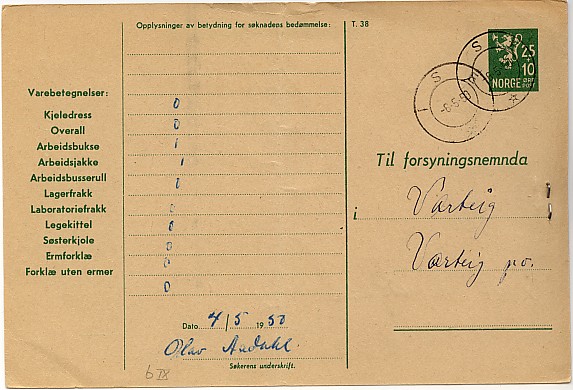 Opplysninger av betydning for søknadens bedømmelse:
T. 38
25
+
10
NORGE
Varebetegnelser:
Kjeledress 0
Overall 0
Arbeidsbukse 1
Arbeidsjakke 1
Arbeidsbusserull 0
Lagerfrakk
Laboratoriefrakk 0
Legekittel 0
Søsterkjole 0
Ermforklæ 0
Forklæ uten ermer 0
Dato 4/5 1950
Olav Aadahl.
Søkerens underskrift.
b IX
I S
-6-5-50
Til forsyningsnemnda
i Varteig
Varteig po.